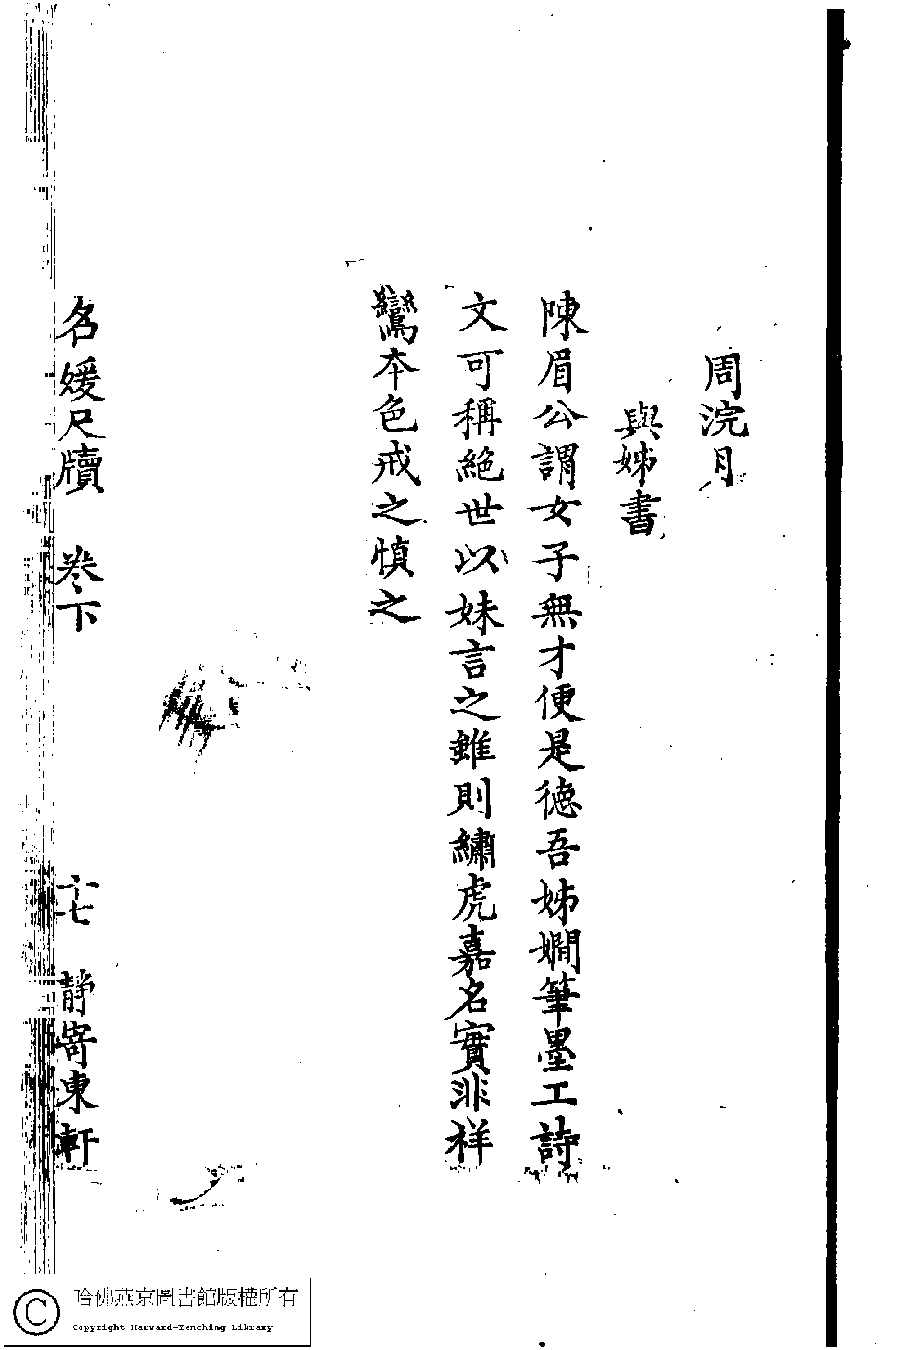 周浣月
與姊書
陳眉公謂女子無才便是德吾姊嫺筆墨工詩
文可稱絕世以妹言之雖則繡虎嘉名實非祥
鸞本色戒之慎之
名媛尺牘 卷下 十七 靜寄東軒
哈佛燕京圖書館版權所有
Copyright Harvard-Yenching Library